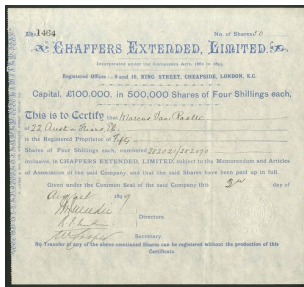 1464 No. of Shares 50
CHAFFERS EXTENDED, LIMITED.
Incorporated under the Companies Acts, 1862 to 1893.
Registered Offices—9 and 10, KING STREET, CHEAPSIDE, LONDON, E.C.
Capital, £100,000, in 500,000 Shares of Four Shillings each,
This is to Certify that Marcus Van
of 22
is the Registered Proprietor of Fifty
Shares of Four Shillings each, numbered
inclusive, in CHAFFERS EXTENDED, LIMITED, subject to the Memorandum and Articles
of Association of the said Company, and that the said Shares have been paid up in full.
Given under the Common Seal of the said Company this day of
August 189
Directors.
Secretary.
No Transfer of any of the above-mentioned Shares can be registered without the production of this
Certificate.